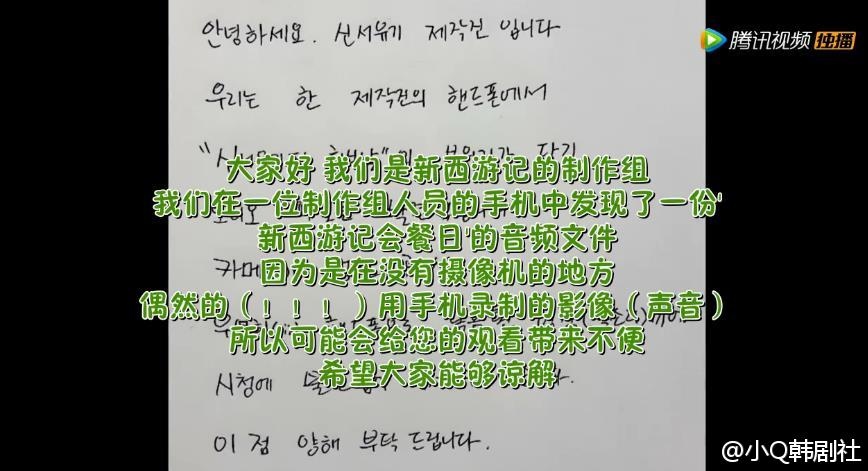 안녕하세요. 신서유기 제작진 입니다
腾讯视频 独播
우리는 한 제작진의 핸드폰에서
大家好 我们是新西游记的制作组
我们在一位制作组人员的手机中发现了一份'
新西游记会餐日'的音频文件
因为是在没有摄像机的地方
偶然的（！！！）用手机录制的影像（声音）
所以可能会给您的观看带来不便
希望大家能够谅解
시청에
이 점 양해 부탁 드립니다.
@小Q韩剧社